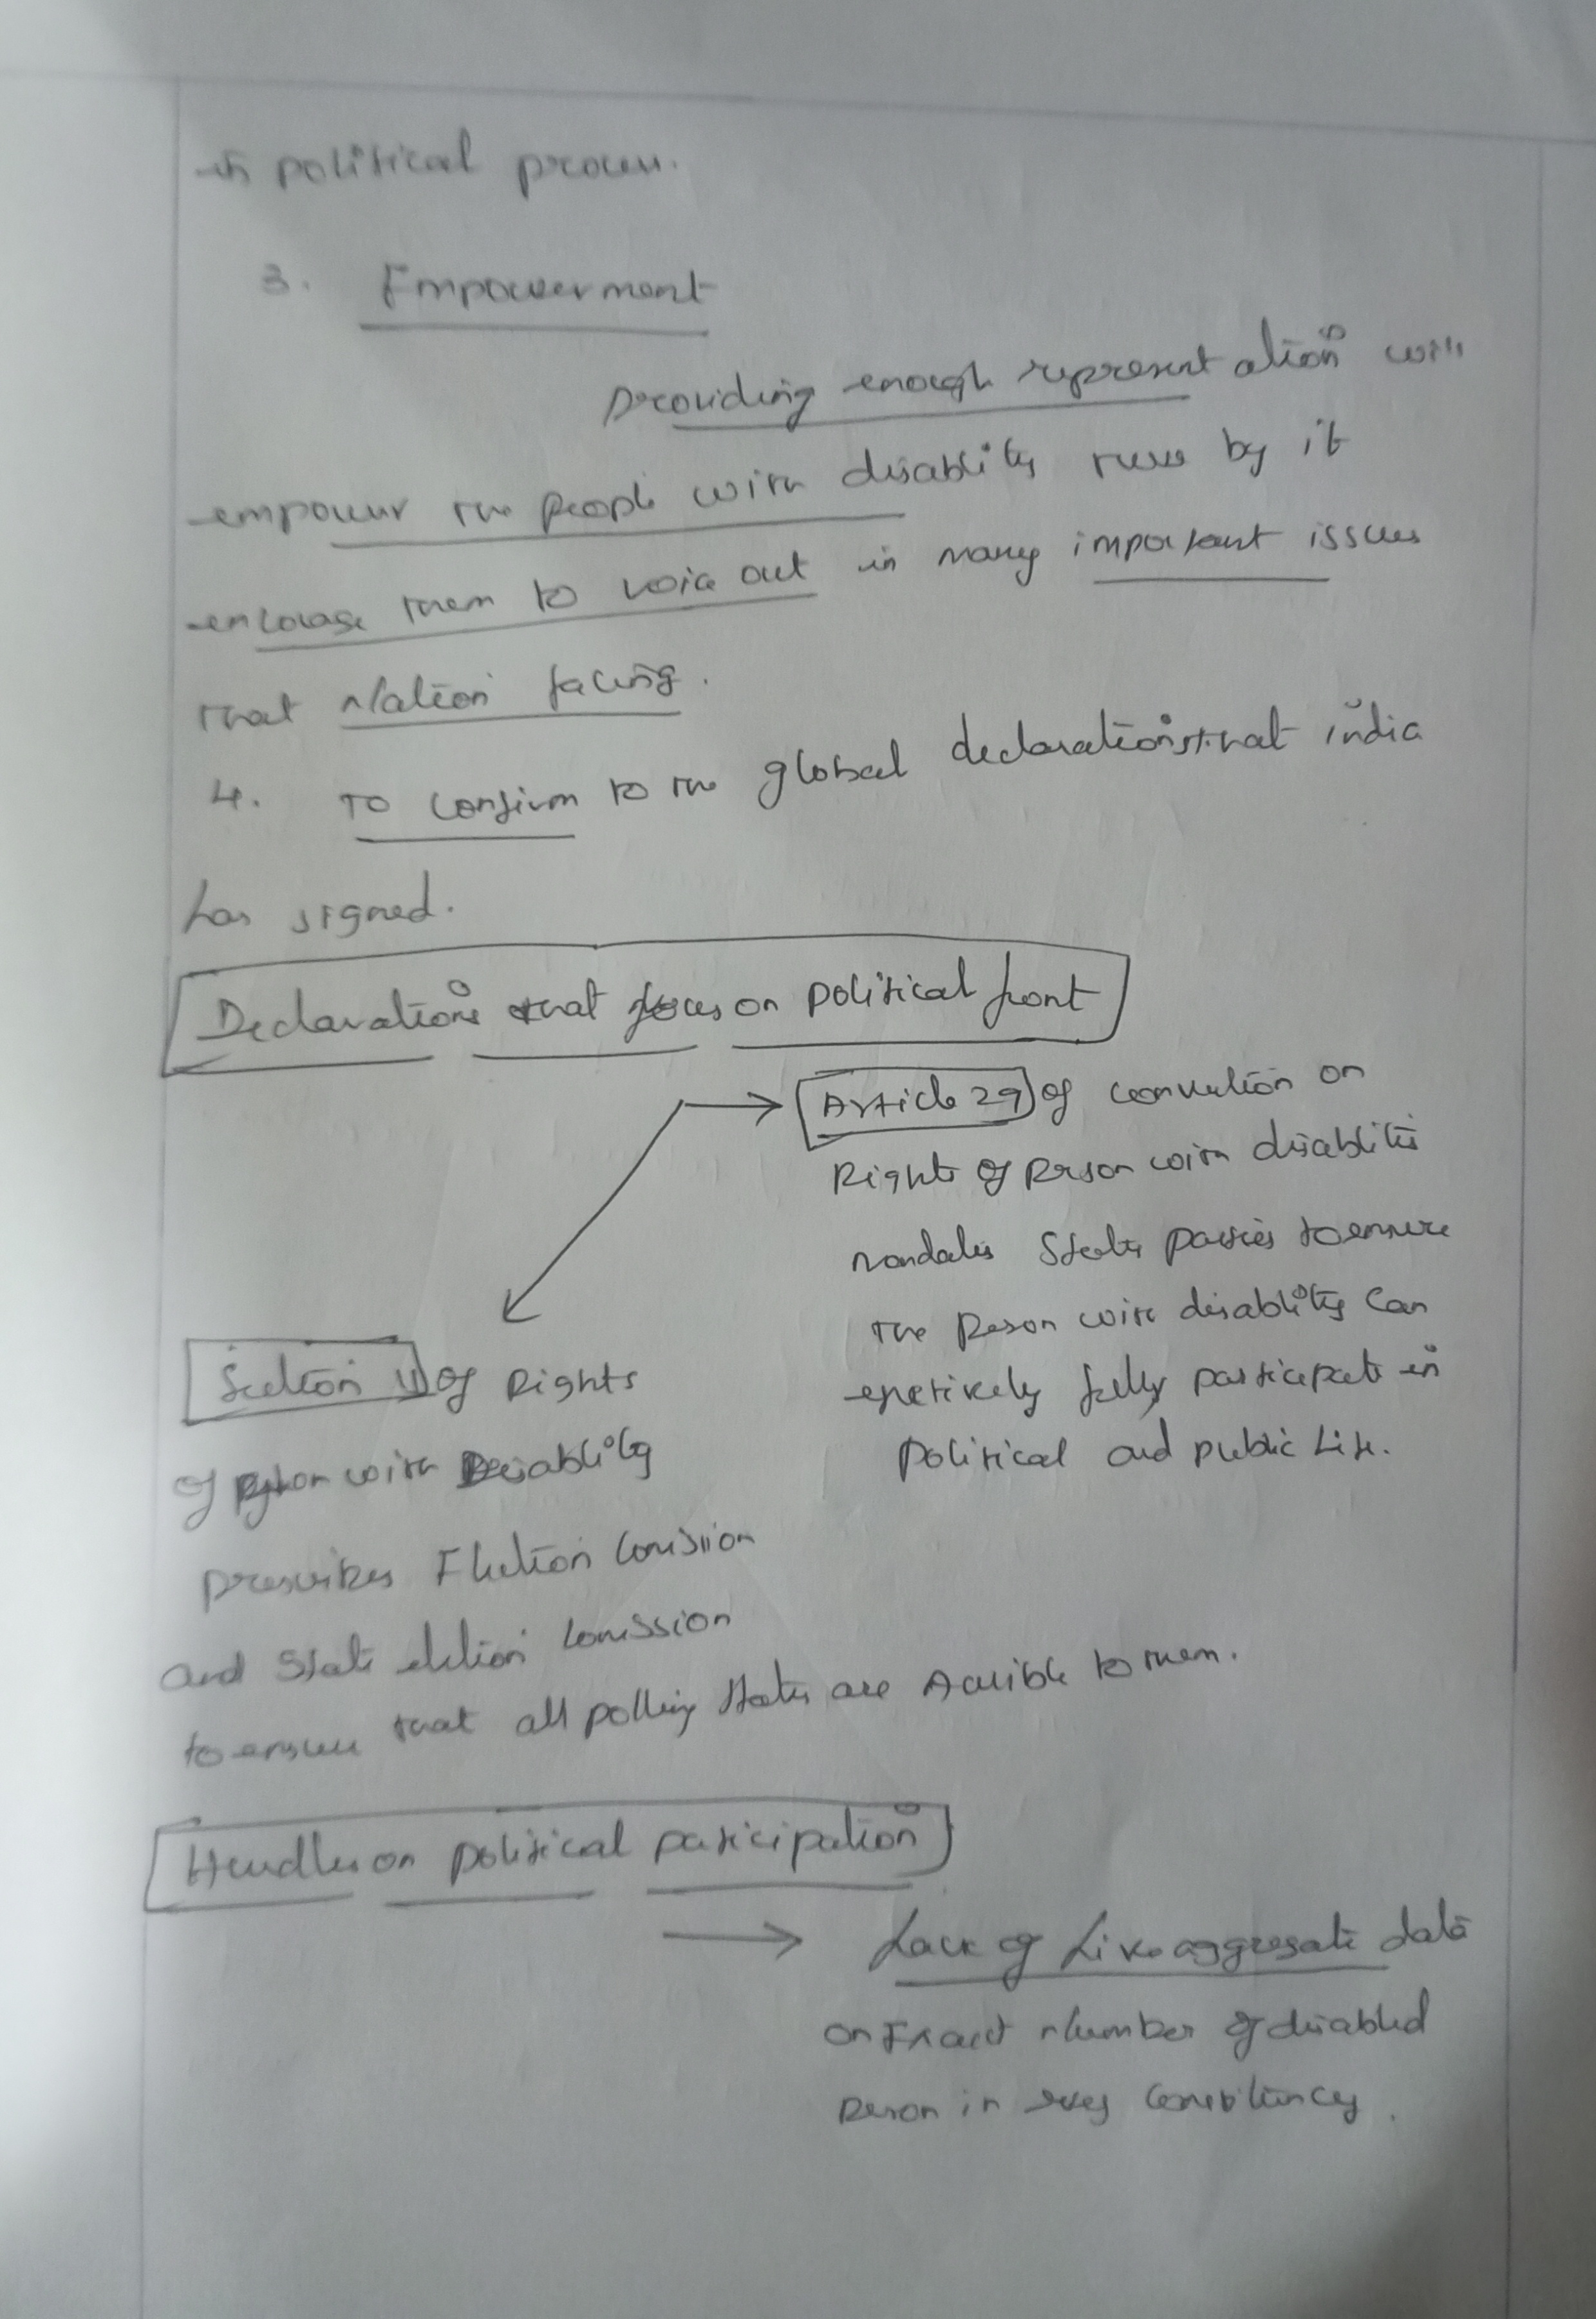 in political process.
3. Empowerment
Providing enough representation will
empower the people with disablity by it
them to voice out in many important issues
that Nation facing.
4. To confirm to the global declarations that india
has signed.
Declarations that focus on political front
Article 29 of convention on
Rights of Person with disablities
mandates States parties to ensure
the Person with disablity can
fully participate in
Political and public Life.
Section 11 of Rights
of person with Disablity
prescribes Election Comission
and State election Comission
to ensure that all polling are to them.
Hurdles on political participation
Lack of Live aggregate data
on Exact Number of disabled
Person in